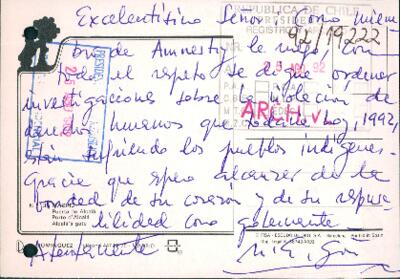 Excelentísimo Señor: Como miem
bro de Amnesty le ruego con
todo el respeto se digne ordenar
investigaciones sobre la violación de
derechos humanos que todavía hoy, 1992,
están sufriendo los pueblos indígenas.
Gracia que espero alcanzar de la
bondad de su corazón y de su respnsa
bilidad como gobernante.
Atentamente
REPUBLICA DE CHILE
PRESIDENCIA
REGISTRO Y ARCHIVO
92/19222
25
92
ARCHIVO
Puerta de Alcalá
Porte d'Alcalá
Alcala's gate
DOMINGUEZ